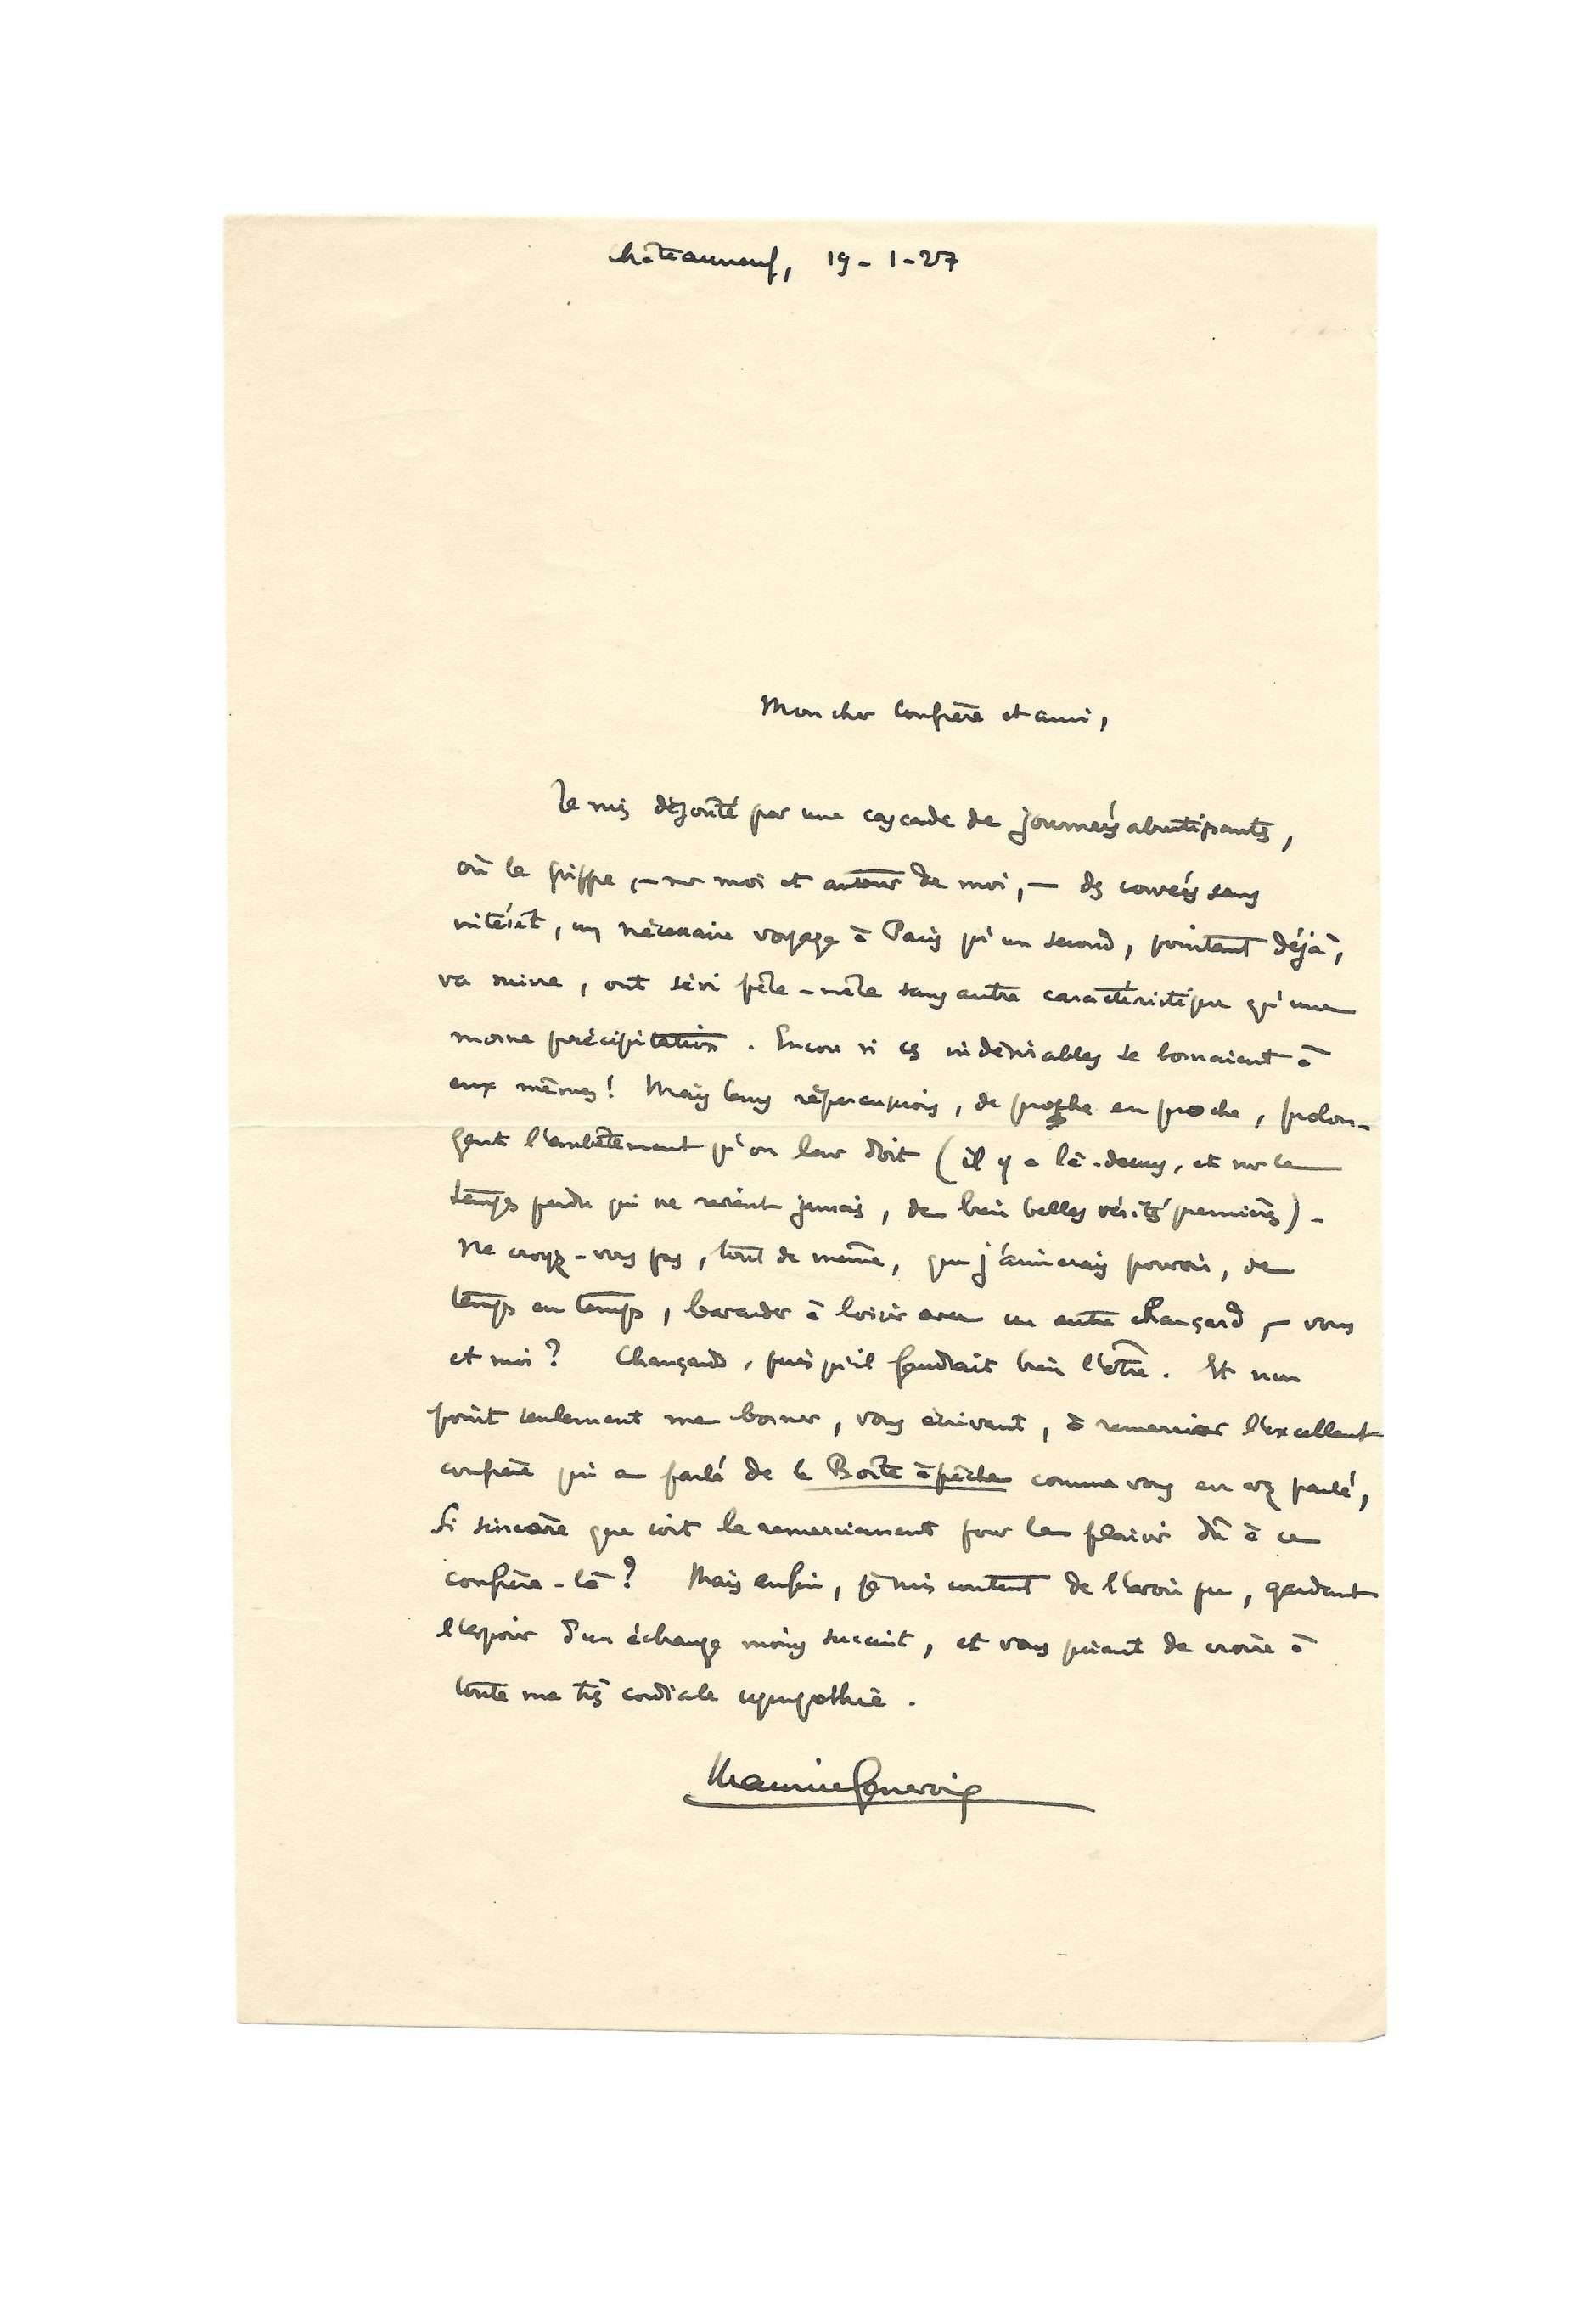 Châteauneuf, 19-1-27
Mon cher confrère et ami,
Je suis dégoûté par une cascade de journées abrutissantes,
où la grippe, — sur moi et autour de moi, — des corvées sans
intérêt, un nécessaire voyage à Paris qu'un second, pointant déjà,
va suivre, ont sévi pêle-mêle sans autre caractéristique qu'une
morne précipitation. Encore si ces indéniables se bornaient à
eux mêmes! Mais leurs répercussions, de proche en proche, prolon-
gent l'embêtement qu'on leur doit (il y a là-dessus, et sur le
temps perdu qui ne revient jamais, de bien belles vérités premières).
Ne croyez-vous pas, tout de même, que j'aimerais pouvoir, de
temps en temps, bavarder à loisir avec un autre chançard, — vous
et moi? Chançards, puisqu'il faudrait bien l'être. Et non
point seulement me borner, vous écrivant, à remercier l'excellent
confrère qui a parlé de la Boîte à pêche comme vous en avez parlé,
si sincère que soit le remerciement pour le plaisir dû à ce
confrère-là? Mais enfin, je suis content de l'avoir pu, gardant
l'espoir d'un échange moins succint, et vous priant de croire à
toute ma très cordiale sympathie.
Maurice Genevoix